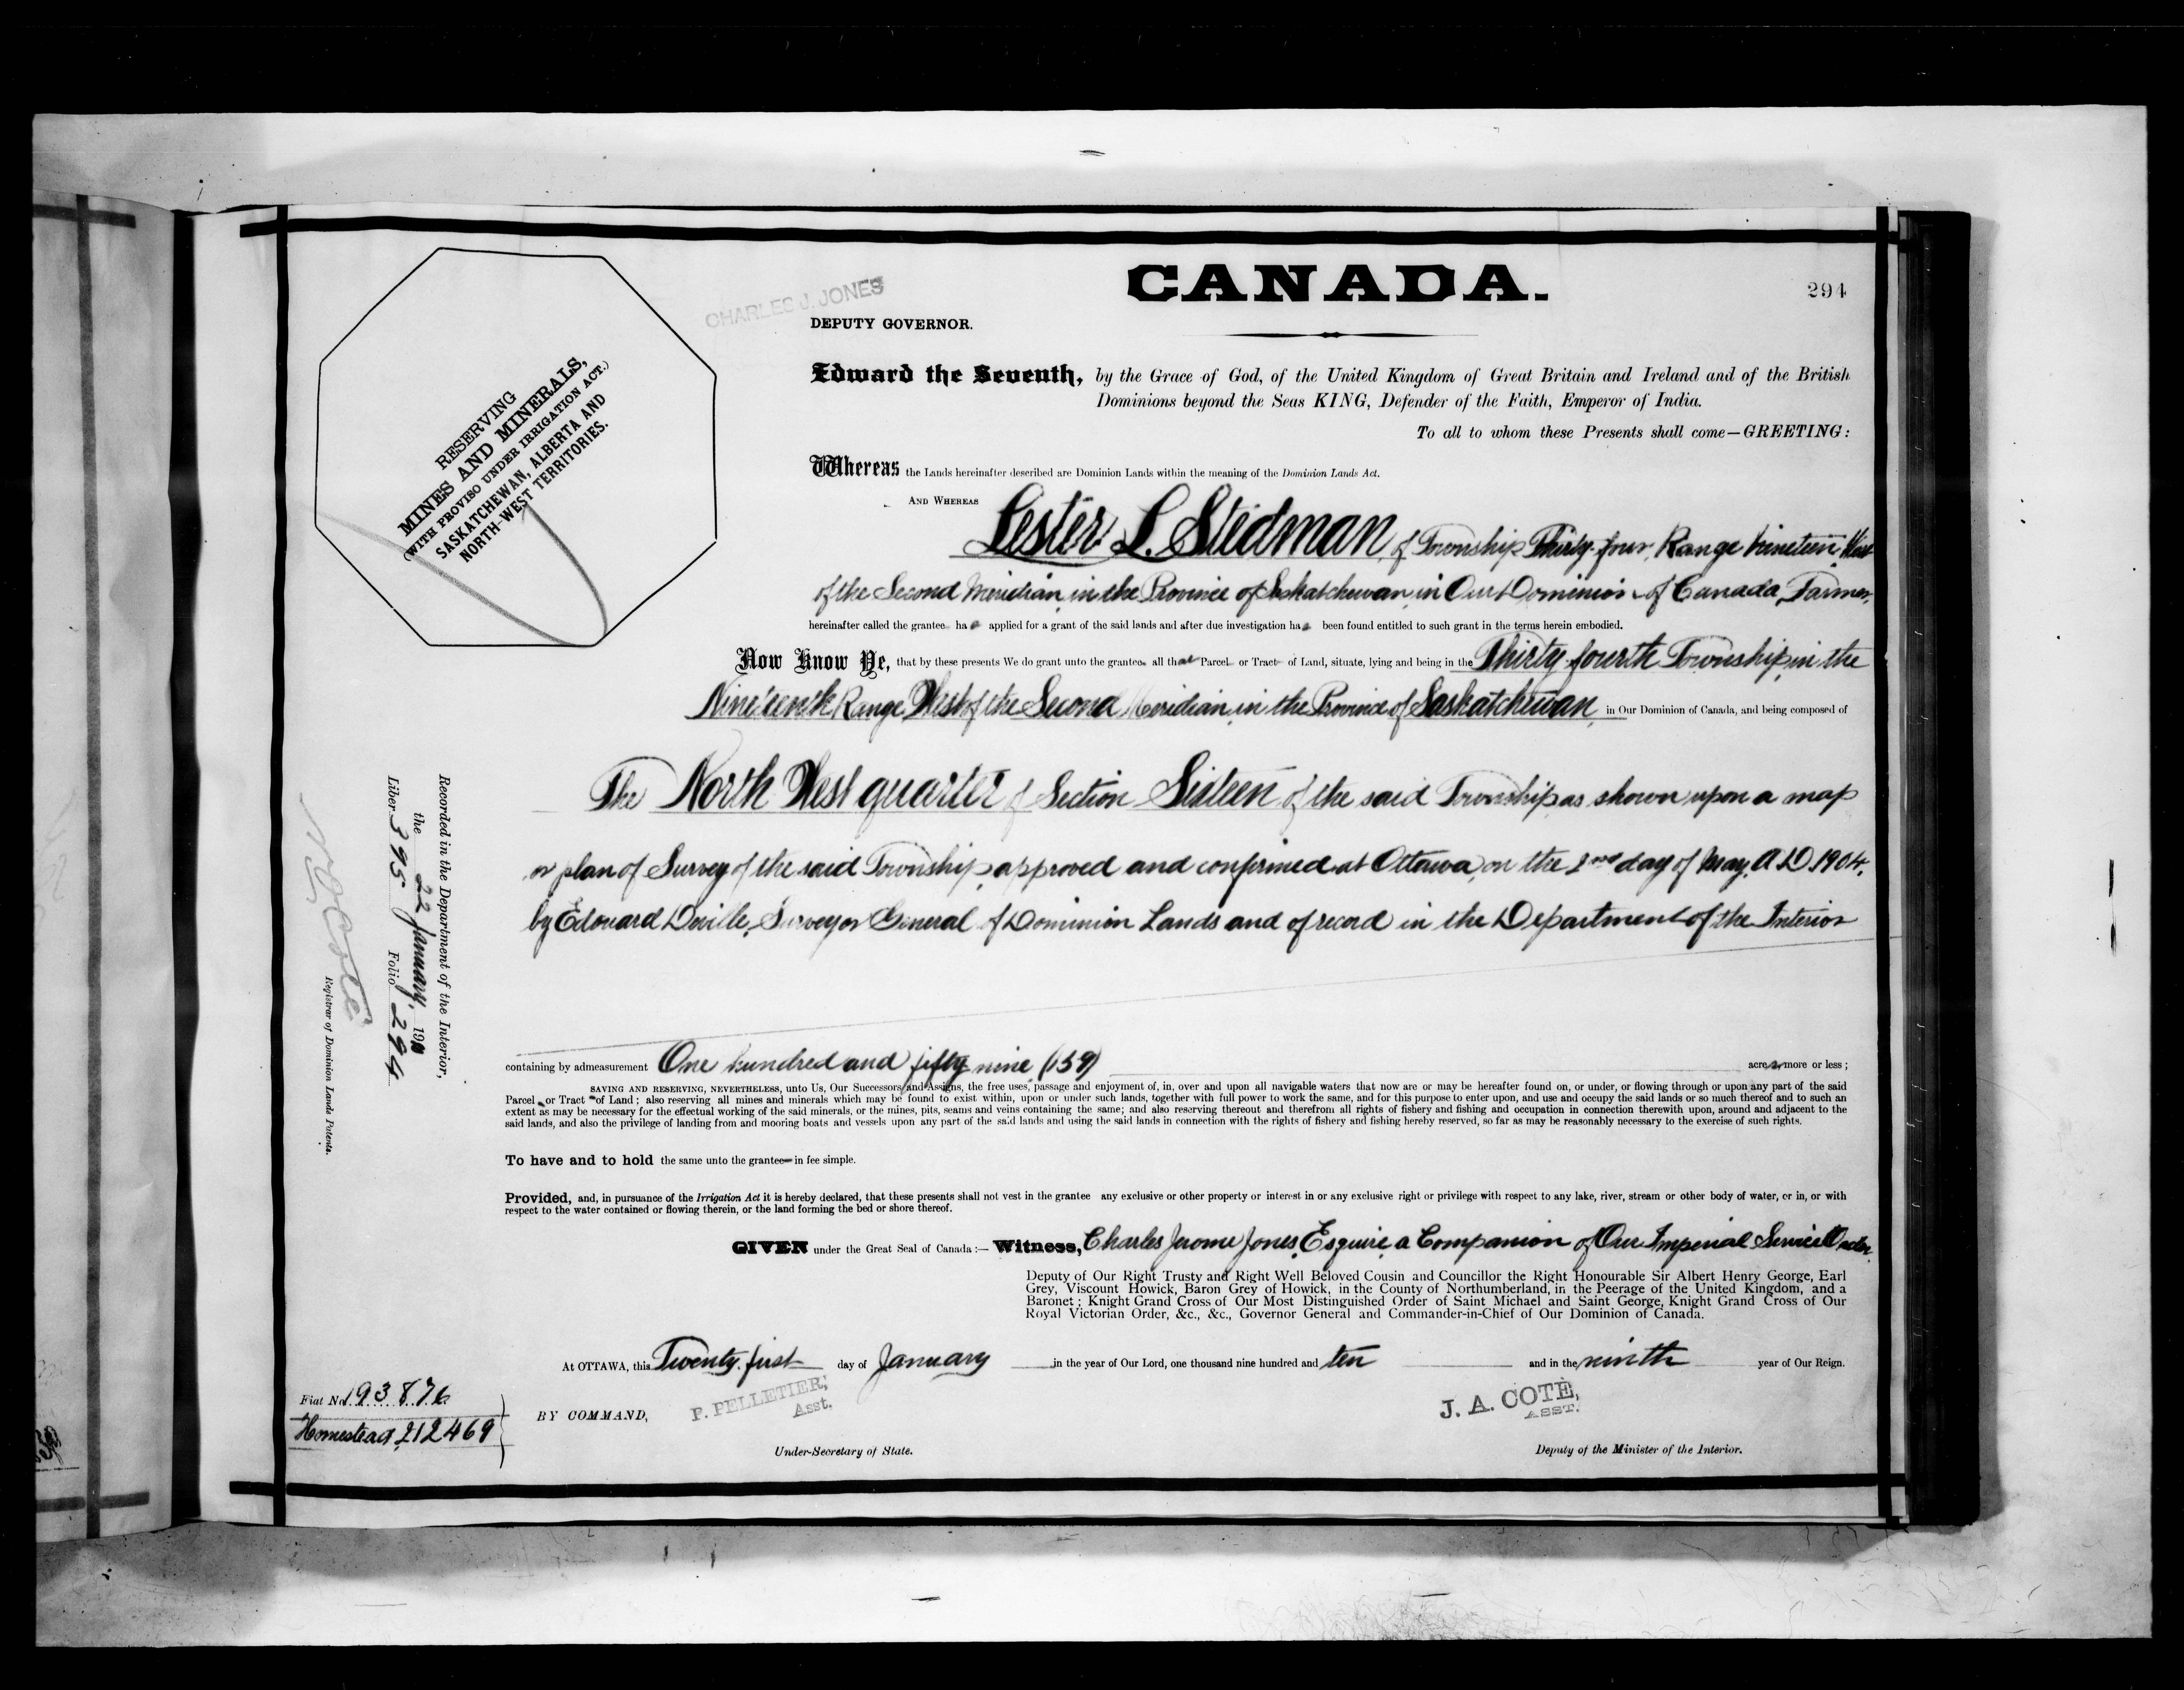 CANADA.
294
CHARLES J. JONES
DEPUTY GOVERNOR.
RESERVING
MINES AND MINERALS,
(WITH PROVISO UNDER IRRIGATION ACT.)
SASKATCHEWAN, ALBERTA AND
NORTH-WEST TERRITORIES.
Edward the Seventh, by the Grace of God, of the United Kingdom of Great Britain and Ireland and of the British
Dominions beyond the Seas KING, Defender of the Faith, Emperor of India.
To all to whom these Presents shall come—GREETING:
Whereas the Lands hereinafter described are Dominion Lands within the meaning of the Dominion Lands Act.
AND WHEREAS Lester L. Stedman of Township Thirty-four, Range Nineteen, West
of the Second Meridian, in the Province of Saskatchewan, in Our Dominion of Canada, Farmer,
hereinafter called the grantee has applied for a grant of the said lands and after due investigation has been found entitled to such grant in the terms herein embodied.
Now Know Ye, that by these presents We do grant unto the grantee all that Parcel or Tract of Land, situate, lying and being in the Thirty-fourth Township, in the
Nineteenth Range, West of the Second Meridian, in the Province of Saskatchewan in Our Dominion of Canada, and being composed of
The North West quarter of Section Sixteen of the said Township, as shown upon a map
or plan of Survey of the said Township, approved and confirmed at Ottawa, on the 2nd day of May, A.D. 1904,
by Edouard Deville, Surveyor General of Dominion Lands and of record in the Department of the Interior
containing by admeasurement One hundred and fifty nine (159) acres, more or less;
SAVING AND RESERVING, NEVERTHELESS, unto Us, Our Successors and Assigns, the free uses, passage and enjoyment of, in, over and upon all navigable waters that now are or may be hereafter found on, or under, or flowing through or upon any part of the said
Parcel or Tract of Land; also reserving all mines and minerals which may be found to exist within, upon or under such lands, together with full power to work the same, and for this purpose to enter upon, and use and occupy the said lands or so much thereof and to such an
extent as may be necessary for the effectual working of the said minerals, or the mines, pits, seams and veins containing the same; and also reserving thereout and therefrom all rights of fishery and fishing and occupation in connection therewith upon, around and adjacent to the
said lands, and also the privilege of landing from and mooring boats and vessels upon any part of the said lands and using the said lands in connection with the rights of fishery and fishing hereby reserved, so far as may be reasonably necessary to the exercise of such rights.
To have and to hold the same unto the grantee in fee simple.
Provided, and, in pursuance of the Irrigation Act it is hereby declared, that these presents shall not vest in the grantee any exclusive or other property or interest in or any exclusive right or privilege with respect to any lake, river, stream or other body of water, or in, or with
respect to the water contained or flowing therein, or the land forming the bed or shore thereof.
GIVEN under the Great Seal of Canada:— Witness, Charles Jerome Jones, Esquire, a Companion of Our Imperial Service Order,
Deputy of Our Right Trusty and Right Well Beloved Cousin and Councillor the Right Honourable Sir Albert Henry George, Earl
Grey, Viscount Howick, Baron Grey of Howick, in the County of Northumberland, in the Peerage of the United Kingdom, and a
Baronet; Knight Grand Cross of Our Most Distinguished Order of Saint Michael and Saint George, Knight Grand Cross of Our
Royal Victorian Order, &c., &c., Governor General and Commander-in-Chief of Our Dominion of Canada.
At OTTAWA, this Twenty first day of January in the year of Our Lord, one thousand nine hundred and ten and in the ninth year of Our Reign.
BY COMMAND,
P. PELLETIER,
Asst.
Under-Secretary of State.
J. A. COTÉ,
ASST.
Deputy of the Minister of the Interior.
Fiat No. 193876
Homestead 212469
Recorded in the Department of the Interior,
the 22 January, 1910
Liber 395 Folio 294
N O Coté
Registrar of Dominion Lands Patents.